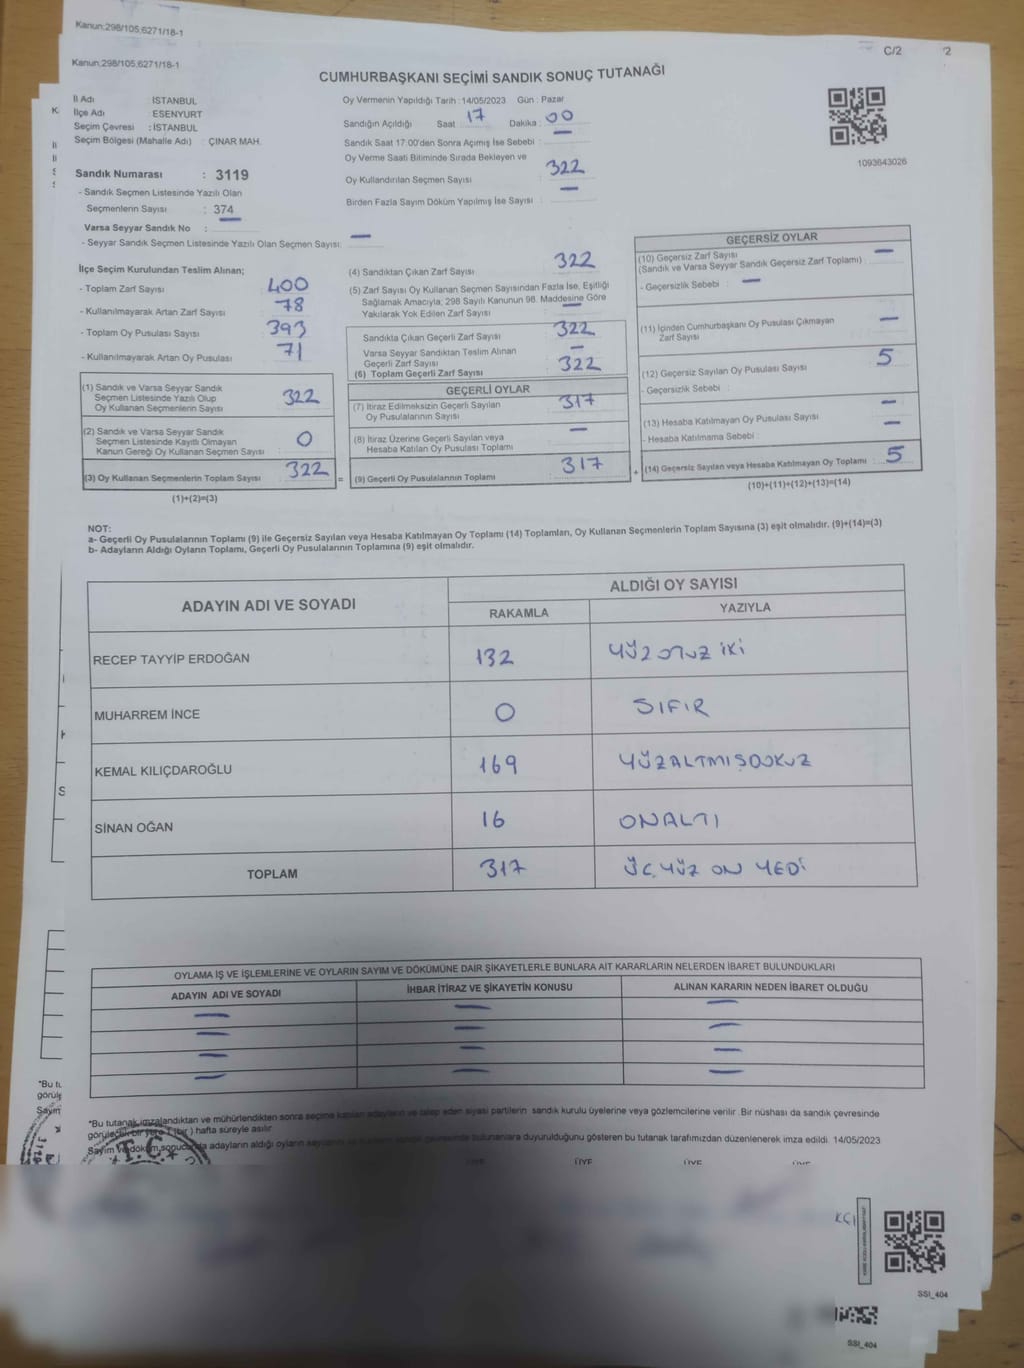 Kanun:298/105,6271/18-1
Kanun:298/105,6271/18-1
C/2
2
CUMHURBAŞKANI SEÇİMİ SANDIK SONUÇ TUTANAĞI
İl Adı İSTANBUL
İlçe Adı ESENYURT
Seçim Çevresi : İSTANBUL
Seçim Bölgesi (Mahalle Adı) : ÇINAR MAH.
Sandık Numarası : 3119
- Sandık Seçmen Listesinde Yazılı Olan
Seçmenlerin Sayısı : 374
Varsa Seyyar Sandık No :
- Seyyar Sandık Seçmen Listesinde Yazılı Olan Seçmen Sayısı: —
Oy Vermenin Yapıldığı Tarih : 14/05/2023 Gün : Pazar
Sandığın Açıldığı Saat 17 Dakika : 00
Sandık Saat 17:00'den Sonra Açımış İse Sebebi : —
Oy Verme Saati Bitiminde Sırada Bekleyen ve
Oy Kullandırılan Seçmen Sayısı : 322
Birden Fazla Sayım Döküm Yapılmış İse Sayısı : —
1093643026
İlçe Seçim Kurulundan Teslim Alınan;
- Toplam Zarf Sayısı : 400
- Kullanılmayarak Artan Zarf Sayısı : 78
- Toplam Oy Pusulası Sayısı : 393
- Kullanılmayarak Artan Oy Pusulası : 71
(1) Sandık ve Varsa Seyyar Sandık
Seçmen Listesinde Yazılı Olup
Oy Kullanan Seçmenlerin Sayısı 322
(2) Sandık ve Varsa Seyyar Sandık
Seçmen Listesinde Kayıtlı Olmayan
Kanun Gereği Oy Kullanan Seçmen Sayısı : 0
(3) Oy Kullanan Seçmenlerin Toplam Sayısı : 322
(1)+(2)=(3)
=
(4) Sandıktan Çıkan Zarf Sayısı 322
(5) Zarf Sayısı Oy Kullanan Seçmen Sayısından Fazla İse, Eşitliği
Sağlamak Amacıyla; 298 Sayılı Kanunun 98. Maddesine Göre
Yakılarak Yok Edilen Zarf Sayısı —
Sandıkta Çıkan Geçerli Zarf Sayısı 322
Varsa Seyyar Sandıktan Teslim Alınan
Geçerli Zarf Sayısı —
(6) Toplam Geçerli Zarf Sayısı 322
GEÇERLİ OYLAR
(7) İtiraz Edilmeksizin Geçerli Sayılan
Oy Pusulalarının Sayısı 317
(8) İtiraz Üzerine Geçerli Sayılan veya
Hesaba Katılan Oy Pusulası Toplamı —
(9) Geçerli Oy Pusulalarının Toplamı 317
+
GEÇERSİZ OYLAR
(10) Geçersiz Zarf Sayısı
(Sandık ve Varsa Seyyar Sandık Geçersiz Zarf Toplamı) : —
- Geçersizlik Sebebi : —
(11) İçinden Cumhurbaşkanı Oy Pusulası Çıkmayan
Zarf Sayısı —
(12) Geçersiz Sayılan Oy Pusulası Sayısı 5
- Geçersizlik Sebebi :
—
(13) Hesaba Katılmayan Oy Pusulası Sayısı —
- Hesaba Katılmama Sebebi :
(14) Geçersiz Sayılan veya Hesaba Katılmayan Oy Toplamı : 5
(10)+(11)+(12)+(13)=(14)
NOT:
a- Geçerli Oy Pusulalarının Toplamı (9) ile Geçersiz Sayılan veya Hesaba Katılmayan Oy Toplamı (14) Toplamları, Oy Kullanan Seçmenlerin Toplam Sayısına (3) eşit olmalıdır. (9)+(14)=(3)
b- Adayların Aldığı Oyların Toplamı, Geçerli Oy Pusulalarının Toplamına (9) eşit olmalıdır.
ADAYIN ADI VE SOYADI
ALDIĞI OY SAYISI
RAKAMLA YAZIYLA
RECEP TAYYİP ERDOĞAN 132 YÜZ OTUZ İKİ
MUHARREM İNCE 0 SIFIR
KEMAL KILIÇDAROĞLU 169 YÜZALTMIŞDOKUZ
SİNAN OĞAN 16 ONALTI
TOPLAM 317 ÜÇ YÜZ ON YEDİ
OYLAMA İŞ VE İŞLEMLERİNE VE OYLARIN SAYIM VE DÖKÜMÜNE DAİR ŞİKAYETLERLE BUNLARA AİT KARARLARIN NELERDEN İBARET BULUNDUKLARI
ADAYIN ADI VE SOYADI İHBAR İTİRAZ VE ŞİKAYETİN KONUSU ALINAN KARARIN NEDEN İBARET OLDUĞU
— — —
— — —
— — —
— — —
*Bu tutanak imzalandıktan ve mühürlendikten sonra seçime katılan adayların ve talep eden siyasi partilerin sandık kurulu üyelerine veya gözlemcilerine verilir. Bir nüshası da sandık çevresinde
hafta süreyle asılır
Sayım ve döküm adayların aldığı oyların duyurulduğunu gösteren bu tutanak tarafımızdan düzenlenerek imza edildi. 14/05/2023
T.C.
ÜYE ÜYE ÜYE
SSI_404
SSI_404